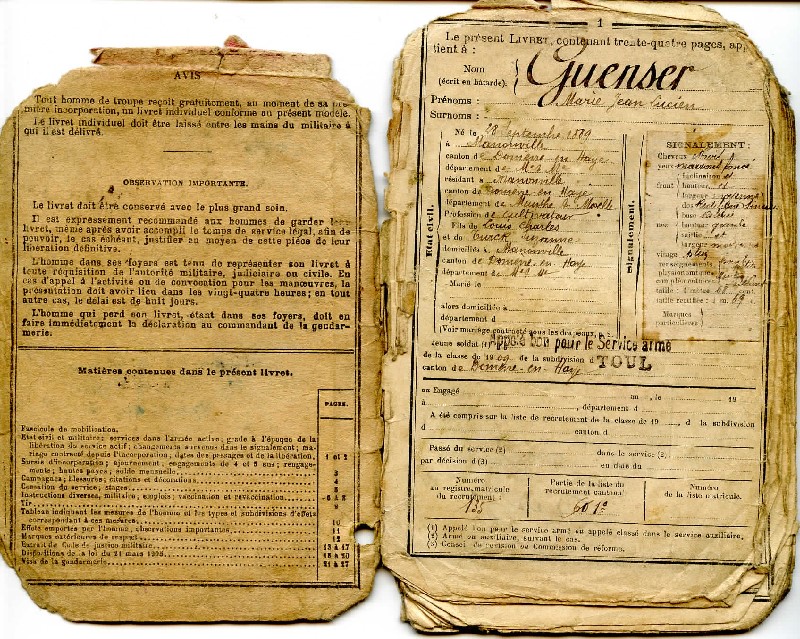 AVIS
Tout homme de troupe reçoit gratuitement, au moment de sa pre-
mière incorporation, un livret individuel conforme au présent modèle.
Le livret individuel doit être laissé entre les mains du militaire à
qui il est délivré.
OBSERVATION IMPORTANTE.
Le livret doit être conservé avec le plus grand soin.
Il est expressément recommandé aux hommes de garder leur
livret, même après avoir accompli le temps de service légal, afin de
pouvoir, le cas échéant, justifier au moyen de cette pièce de leur
libération définitive.
L'homme dans ses foyers est tenu de représenter son livret à
toute réquisition de l'autorité militaire, judiciaire ou civile. En
cas d'appel à l'activité ou de convocation pour les manœuvres, la
présentation doit avoir lieu dans les vingt-quatre heures; en tout
autre cas, le délai est de huit jours.
L'homme qui perd son livret, étant dans ses foyers, doit en
faire immédiatement la déclaration au commandant de la gendar-
merie.
Matières contenues dans le présent livret.
PAGES.
Fascicule de mobilisation.
Etat civil et militaire; services dans l'armée active; grade à l'époque de la
libération du service actif; changements survenus dans le signalement; ma-
riage contracté depuis l'incorporation; dates des passages et de la libération. 1 et 2
Sursis d'incorporation; ajournement; engagements de 4 et 5 ans; rengage-
ments; hautes payes; solde mensuelle 3
Campagnes; blessures; citations et décorations 4
Cessation du service; stages 5
Instructions diverses, militaire; emplois; vaccination et revaccination 6 à 8
Tir 9
Tableau indiquant les mesures de l'homme et les types et subdivisions d'effets
correspondant à ces mesures 10
Effets emportés par l'homme; observations importantes 11
Marques extérieures de respect 12
Extrait du Code de justice militaire 13 à 17
Dispositions de la loi du 21 mars 1905 18 à 20
Visa de la gendarmerie 21 à 27
1
Le présent LIVRET, contenant trente-quatre pages, appar-
tient à :
Nom
(écrit en bâtarde). Guenser
Prénoms : Marie Jean Lucien
Surnoms :
Etat civil.
Né le 28 Septembre 1889
à Manonville
canton de Domèvre-en-Haye
département de Mthe & Mlle
résidant à Manonville
canton de Domèvre-en-Haye
département de Meurthe & Moselle
Profession de Cultivateur
Fils de Louis Charles
et de
domiciliés à Manonville
canton de Domèvre-en-Haye
département de
Marié le
alors domiciliée à
département d
(Voir mariage contracté sous les drapeaux, p. 2.
Signalement.
SIGNALEMENT:
Cheveux
yeux marrons foncé
front inclinaison
hauteur
largeur moyenne
nez
base
hauteur
saillie
largeur
visage
renseignements
physionomiques
complémentaires
taille: 1 mètre 68 cent.
taille rectifiée: 1 m. 69 c.
Marques
particulières
Jeune soldat (1) Appelé bon pour le Service armé
de la classe de 1909 de la subdivision d TOUL
canton de Domèvre-en-Haye
ou Engagé au , le 19
à , département d
A été compris sur la liste de recrutement de la classe de 19 , de la subdivision
d canton d
Passé du service (2) dans le service (2),
par décision d (3) en date du
Numéro
au registre matricule
du recrutement :
135
Partie de la liste du
recrutement cantonal
Numéro
de la liste matricule.
(1) Appelé bon pour le service armé ou appelé classé dans le service auxiliaire.
(2) Armé ou auxiliaire, suivant le cas.
(3) Conseil de révision ou Commission de réforme.